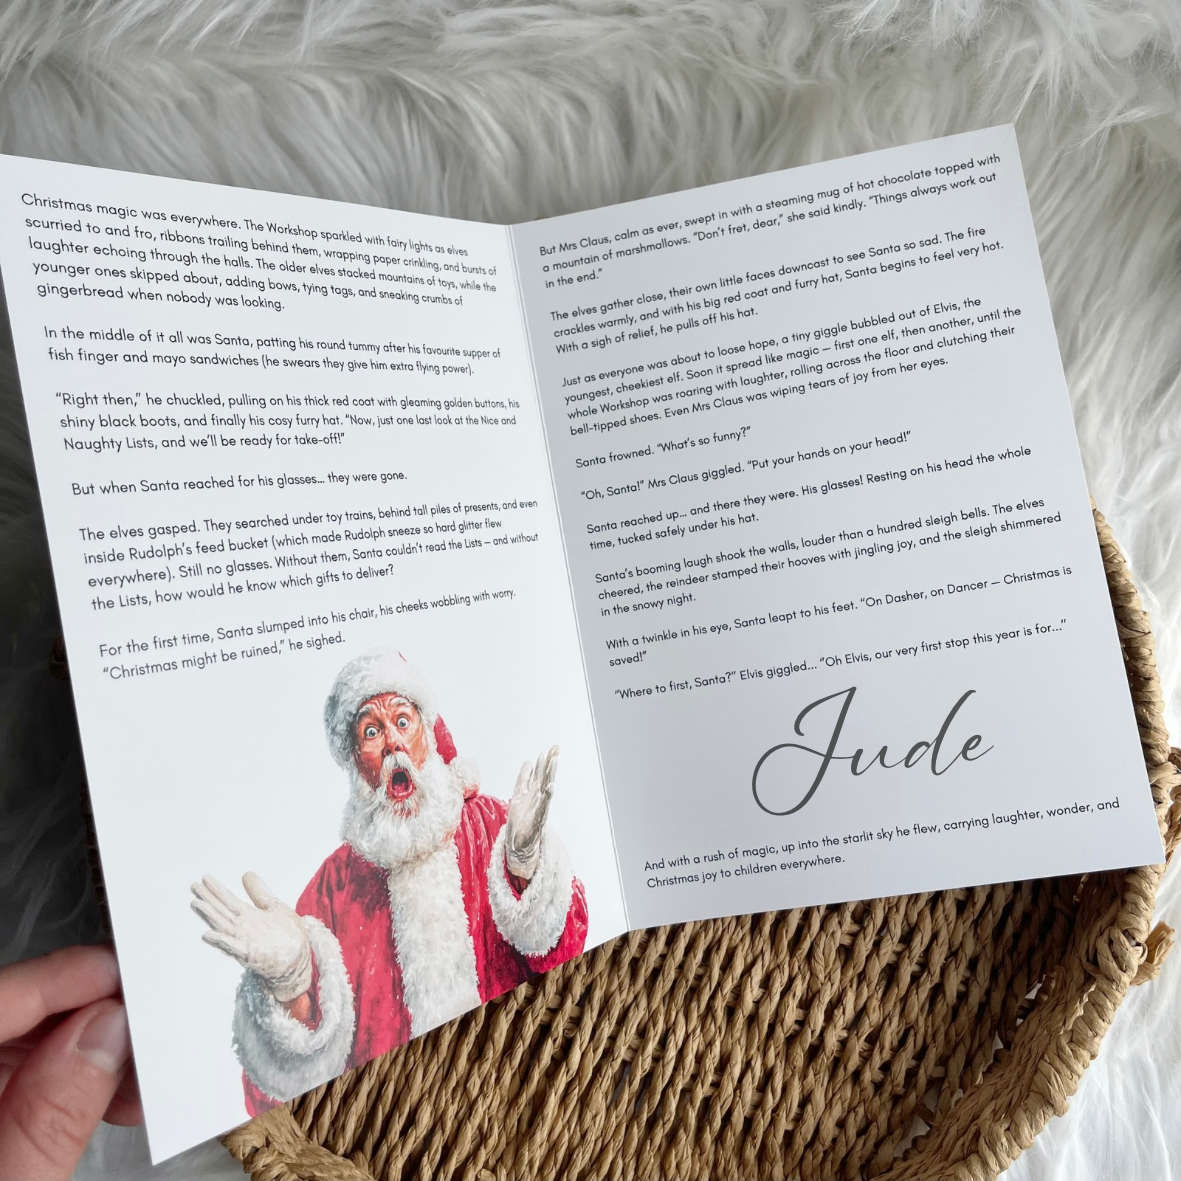 Christmas magic was everywhere. The Workshop sparkled with fairy lights as elves
scurried to and fro, ribbons trailing behind them, wrapping paper crinkling, and bursts of
laughter echoing through the halls. The older elves stacked mountains of toys, while the
younger ones skipped about, adding bows, tying tags, and sneaking crumbs of
gingerbread when nobody was looking.
In the middle of it all was Santa, patting his round tummy after his favourite supper of
fish finger and mayo sandwiches (he swears they give him extra flying power).
“Right then,” he chuckled, pulling on his thick red coat with gleaming golden buttons, his
shiny black boots, and finally his cosy furry hat. “Now, just one last look at the Nice and
Naughty Lists, and we’ll be ready for take-off!”
But when Santa reached for his glasses... they were gone.
The elves gasped. They searched under toy trains, behind tall piles of presents, and even
inside Rudolph’s feed bucket (which made Rudolph sneeze so hard glitter flew
everywhere). Still no glasses. Without them, Santa couldn’t read the Lists — and without
the Lists, how would he know which gifts to deliver?
For the first time, Santa slumped into his chair, his cheeks wobbling with worry.
“Christmas might be ruined,” he sighed.
But Mrs Claus, calm as ever, swept in with a steaming mug of hot chocolate topped with
a mountain of marshmallows. “Don’t fret, dear,” she said kindly. “Things always work out
in the end.”
The elves gather close, their own little faces downcast to see Santa so sad. The fire
crackles warmly, and with his big red coat and furry hat, Santa begins to feel very hot.
With a sigh of relief, he pulls off his hat.
Just as everyone was about to loose hope, a tiny giggle bubbled out of Elvis, the
youngest, cheekiest elf. Soon it spread like magic — first one elf, then another, until the
whole Workshop was roaring with laughter, rolling across the floor and clutching their
bell-tipped shoes. Even Mrs Claus was wiping tears of joy from her eyes.
Santa frowned. “What’s so funny?”
“Oh, Santa!” Mrs Claus giggled. “Put your hands on your head!”
Santa reached up... and there they were. His glasses! Resting on his head the whole
time, tucked safely under his hat.
Santa’s booming laugh shook the walls, louder than a hundred sleigh bells. The elves
cheered, the reindeer stamped their hooves with jingling joy, and the sleigh shimmered
in the snowy night.
With a twinkle in his eye, Santa leapt to his feet. “On Dasher, on Dancer — Christmas is
saved!”
“Where to first, Santa?” Elvis giggled... “Oh Elvis, our very first stop this year is for...”
Jude
And with a rush of magic, up into the starlit sky he flew, carrying laughter, wonder, and
Christmas joy to children everywhere.